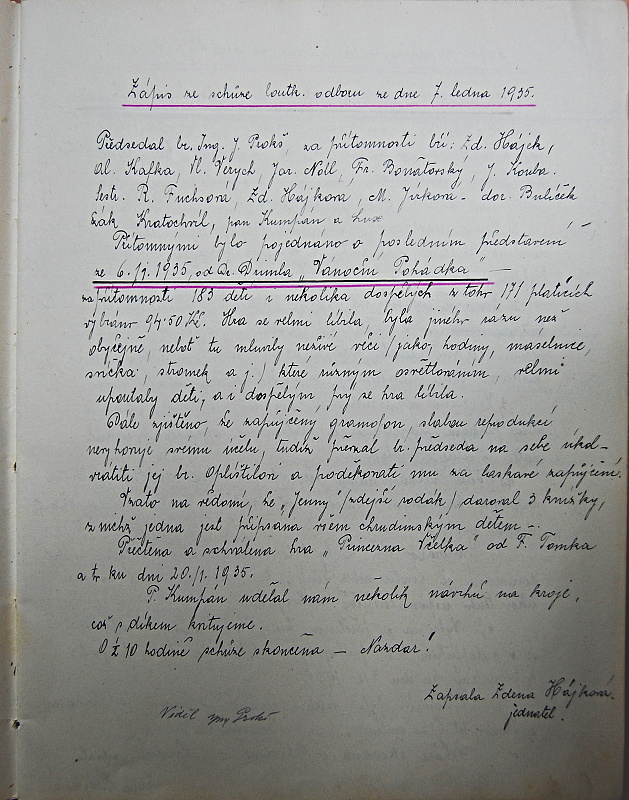 Zápis ze schůze loutk. odboru ze dne 7. ledna 1935.
Předsedal br. Ing. J. Prokš, za přítomnosti bří: Zd. Hájek,
Al. Kafka, Vl. Verych, Jar. Nöll, Fr. Bonatorský, J. Kouba.
Sestr. R. Fuchsova, Zd. Hájkova, M. Jirkova - dor. Bulíček
žák Kratochvíl, pan Kumpán a Lux
Přítomnými bylo pojednáno o posledním představení
ze 6./1. 1935, od Dr. Drumla „Vánoční Pohádka" —
za přítomnosti 183 dětí i několika dospělých z toho 171 platících
vybráno 94·50 Kč. Hra se velmi líbila, byla jiného razu než
obyčejně, neboť tu mluvily neživé věci (jako, hodiny, máselnice,
svíčka, stromek a j.) které různým osvětlováním, velmi
upoutaly děti, a i dospělým prý se hra líbila.
Dále zjištěno, že zapůjčený gramofon, slabou reprodukcí
nevyhovuje svému účelu, tudíž převzal br. předseda na sebe úkol -
vrátiti jej br. Oplištilovi a poděkovati mu za laskavé zapůjčení.
Vzato na vědomí, že „Jenny" (zdejší rodák) daroval 3 knížky,
z nichž jedna jest připsána všem chrudimským dětem —.
Přečtena a schválena hra „Princezna Včelka" od F. Tomka
a to ku dni 20./1. 1935.
P. Kumpán udělal nám několik návrhů na kroje,
což s díkem kvitujeme.
O ž 10 hodině schůze skončena — Nazdar!
Zapsala Zdena Hájková.
jednatel.
Viděl Prokš